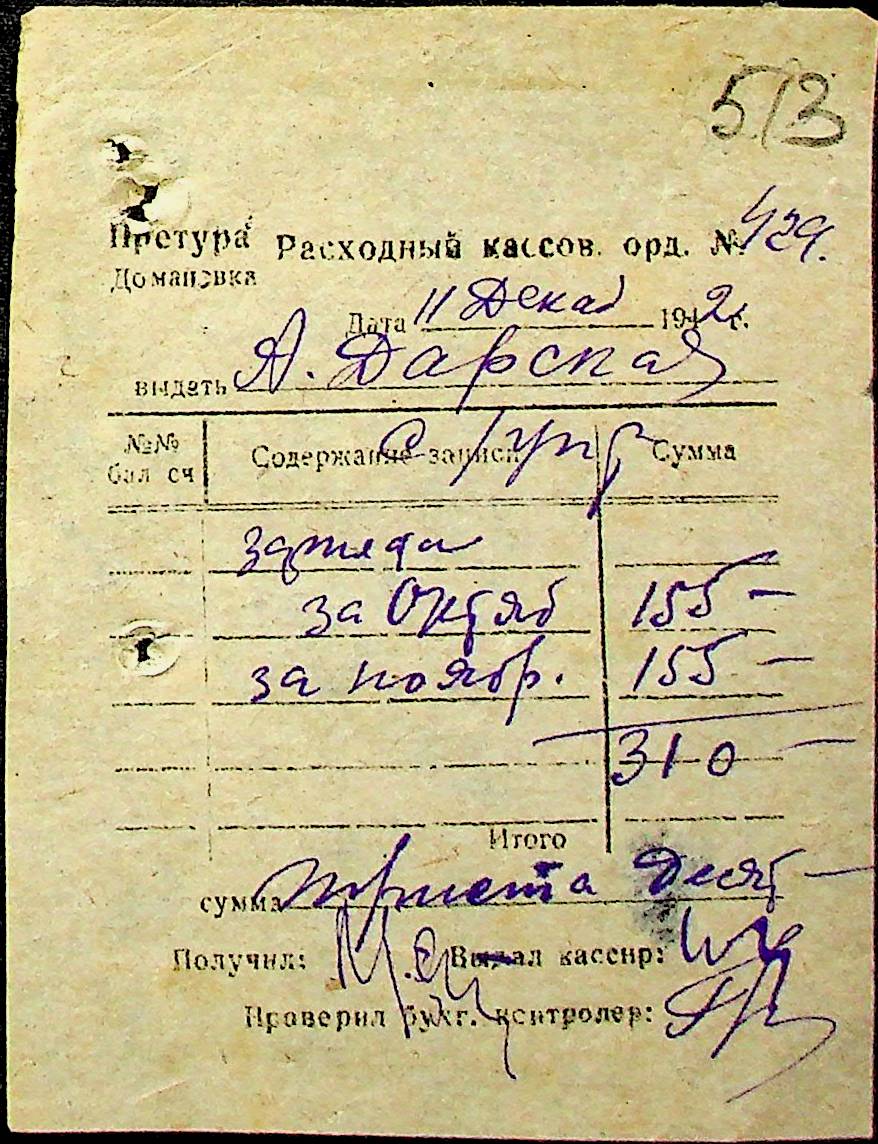 513
Претура Расходный кассов. орд. № 429.
Домановка
Дата 11 Декаб 1942 г.
выдать А. Дарская
№№ бал сч Содержание записи Сумма
зарплата
за Октяб 155 —
за нояб. 155 —
310 —
Итого
сумма триста десят —
Получил: Выдал кассир:
Проверил бухг. контролер: